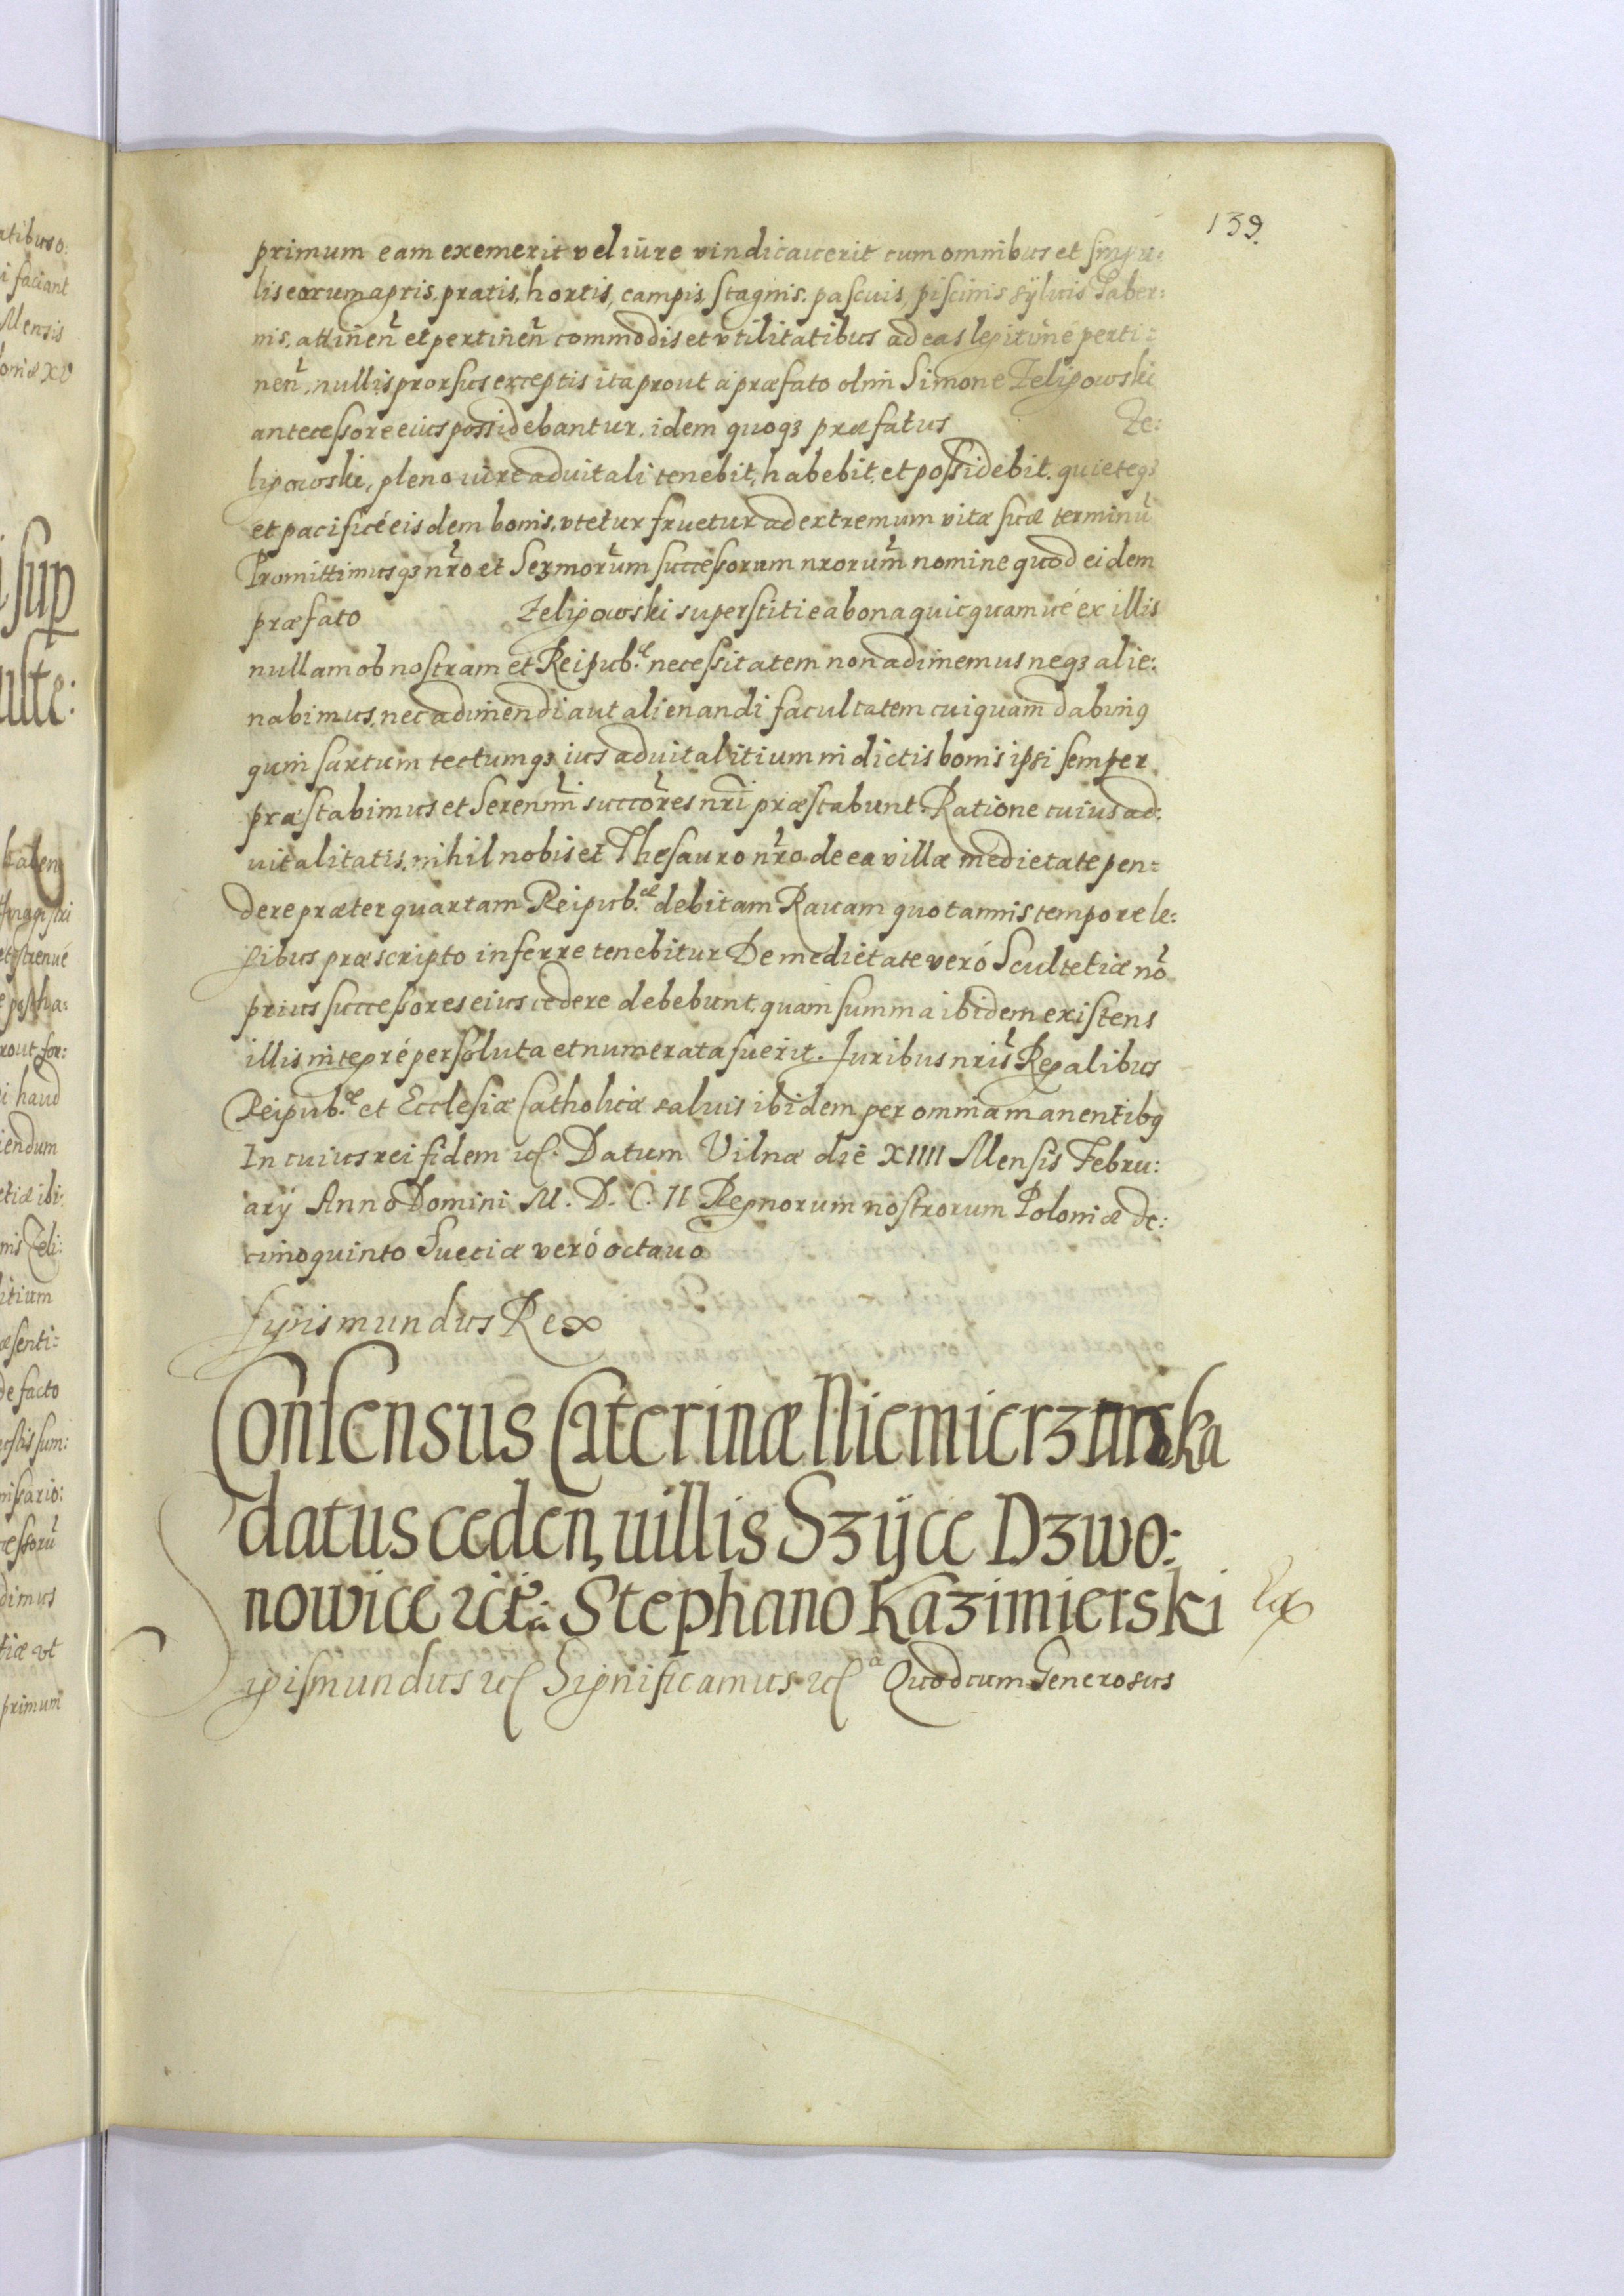 139.
primum eam exemerit vel iure vindicauerit cum omnibus et singu:
lis earum agris, pratis, hortis, campis, stagnis, pascuis, piscinis sÿluis Taber:
nis, attinen̄ et pertinen̄ commodis et vtilitatibus ad eas legitimé perti:
nen̄, nullis prorsus exceptis ita prout á præfato olim Simone Zelipowski
antecessore eius possidebantur, idem quoqȝ præfatus Ze:
lipowski, pleno iure aduitali tenebit, habebit, et possidebit, quieteqȝ
et pacificé eisdem bonis, vtetur fruetur ad extremum vitæ suæ terminū
Promittimusqȝ nr̄o et Sermorum̄ successorum nrorum̄ nomine quod eidem
præfato Zelipowski superstiti ea bona quicquamué ex illis
nullam ob nostram et Reipub.æ necessitatem non adimemus neqȝ alie:
nabimus, nec adimendi aut alienandi facultatem cuiquam dabimꝰ
quin sartum tectumqȝ ius aduitalitium in dictis bonis ipsi semper
præstabimus et Serenm̄i succōres nr̄i præstabunt. Ratione cuius ad:
uitalitatis, nihil nobis et Thesauro nr̄o de ea villæ medietate pen:
dere præter quartam Reipub.æ debitam Rauam quotannis tempore le:
gibus præscripto inferre tenebitur De medietate veró Scultetiæ nō
prius successores eius cedere debebunt, quam summa ibidem existens
illis integré persoluta et numerata fuerit. Juribus nris̄ Regalibus
Reipub.æ et Ecclesiæ Catholicæ saluis ibidem per omnia manentibꝰ
In cuius rei fidem ic̄. Datum Vilnæ die XIIII Mensis Febru:
arÿ Anno Domini M. D. C. II Regnorum nostrorum Poloniæ de:
cimo quinto Sueciæ veró octauo
Sygismundus Rex
Consensus Caterinæ Niemierzinska
datus ceden, uillis Szÿce Dzwo:
nowice ict̄a: Stephano Kazimierski
Sigismundus ic̄ Significamus ic̄a Quod cum Generosus